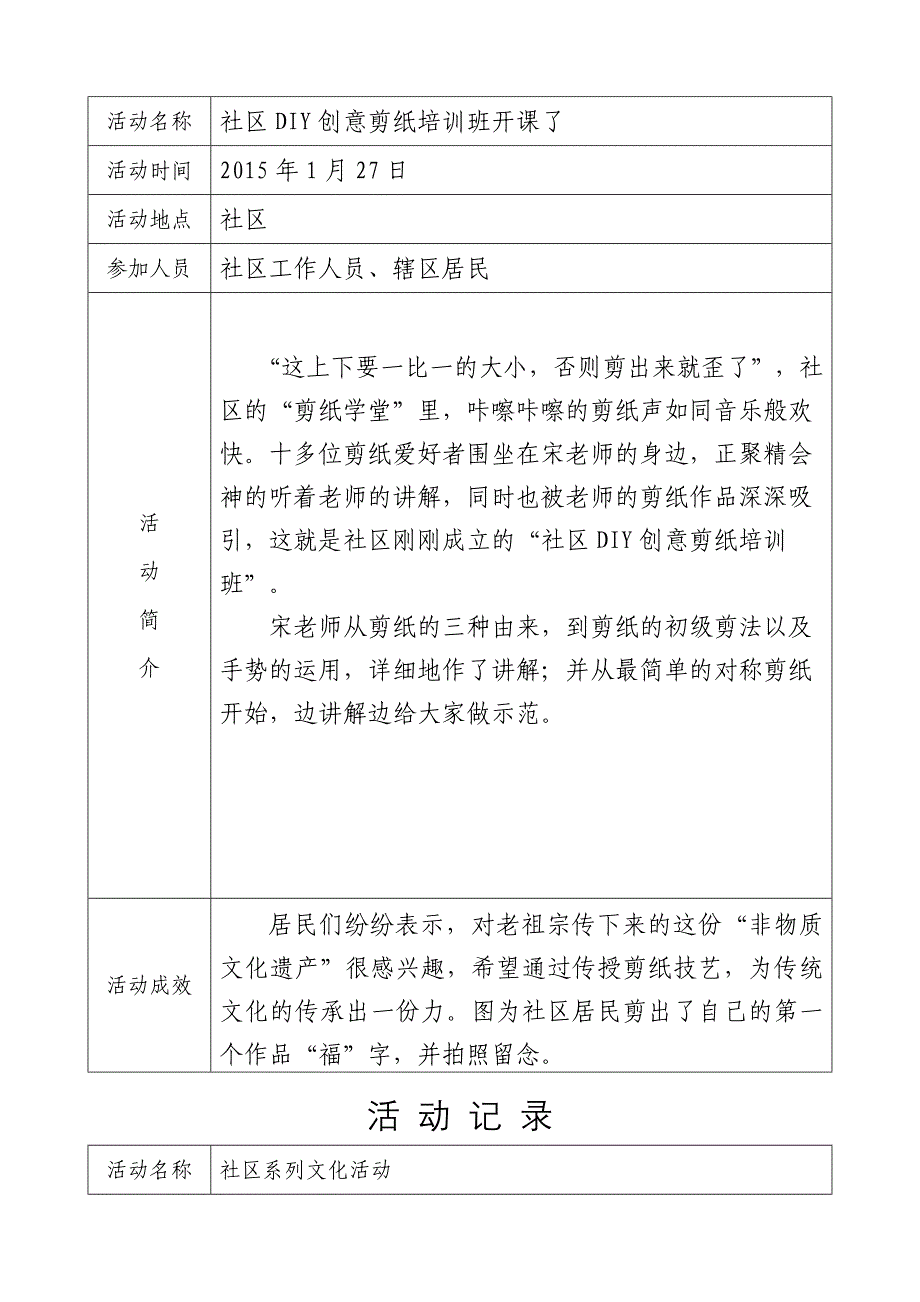 活动名称 社区 DIY 创意剪纸培训班开课了
活动时间 2015 年 1 月 27 日
活动地点 社区
参加人员 社区工作人员、辖区居民
活动简介
“这上下要一比一的大小，否则剪出来就歪了”，社
区的“剪纸学堂”里，咔嚓咔嚓的剪纸声如同音乐般欢
快。十多位剪纸爱好者围坐在宋老师的身边，正聚精会
神的听着老师的讲解，同时也被老师的剪纸作品深深吸
引，这就是社区刚刚成立的“社区 DIY 创意剪纸培训
班”。
宋老师从剪纸的三种由来，到剪纸的初级剪法以及
手势的运用，详细地作了讲解；并从最简单的对称剪纸
开始，边讲解边给大家做示范。
活动成效
居民们纷纷表示，对老祖宗传下来的这份“非物质
文化遗产”很感兴趣，希望通过传授剪纸技艺，为传统
文化的传承出一份力。图为社区居民剪出了自己的第一
个作品“福”字，并拍照留念。
活 动 记 录
活动名称 社区系列文化活动